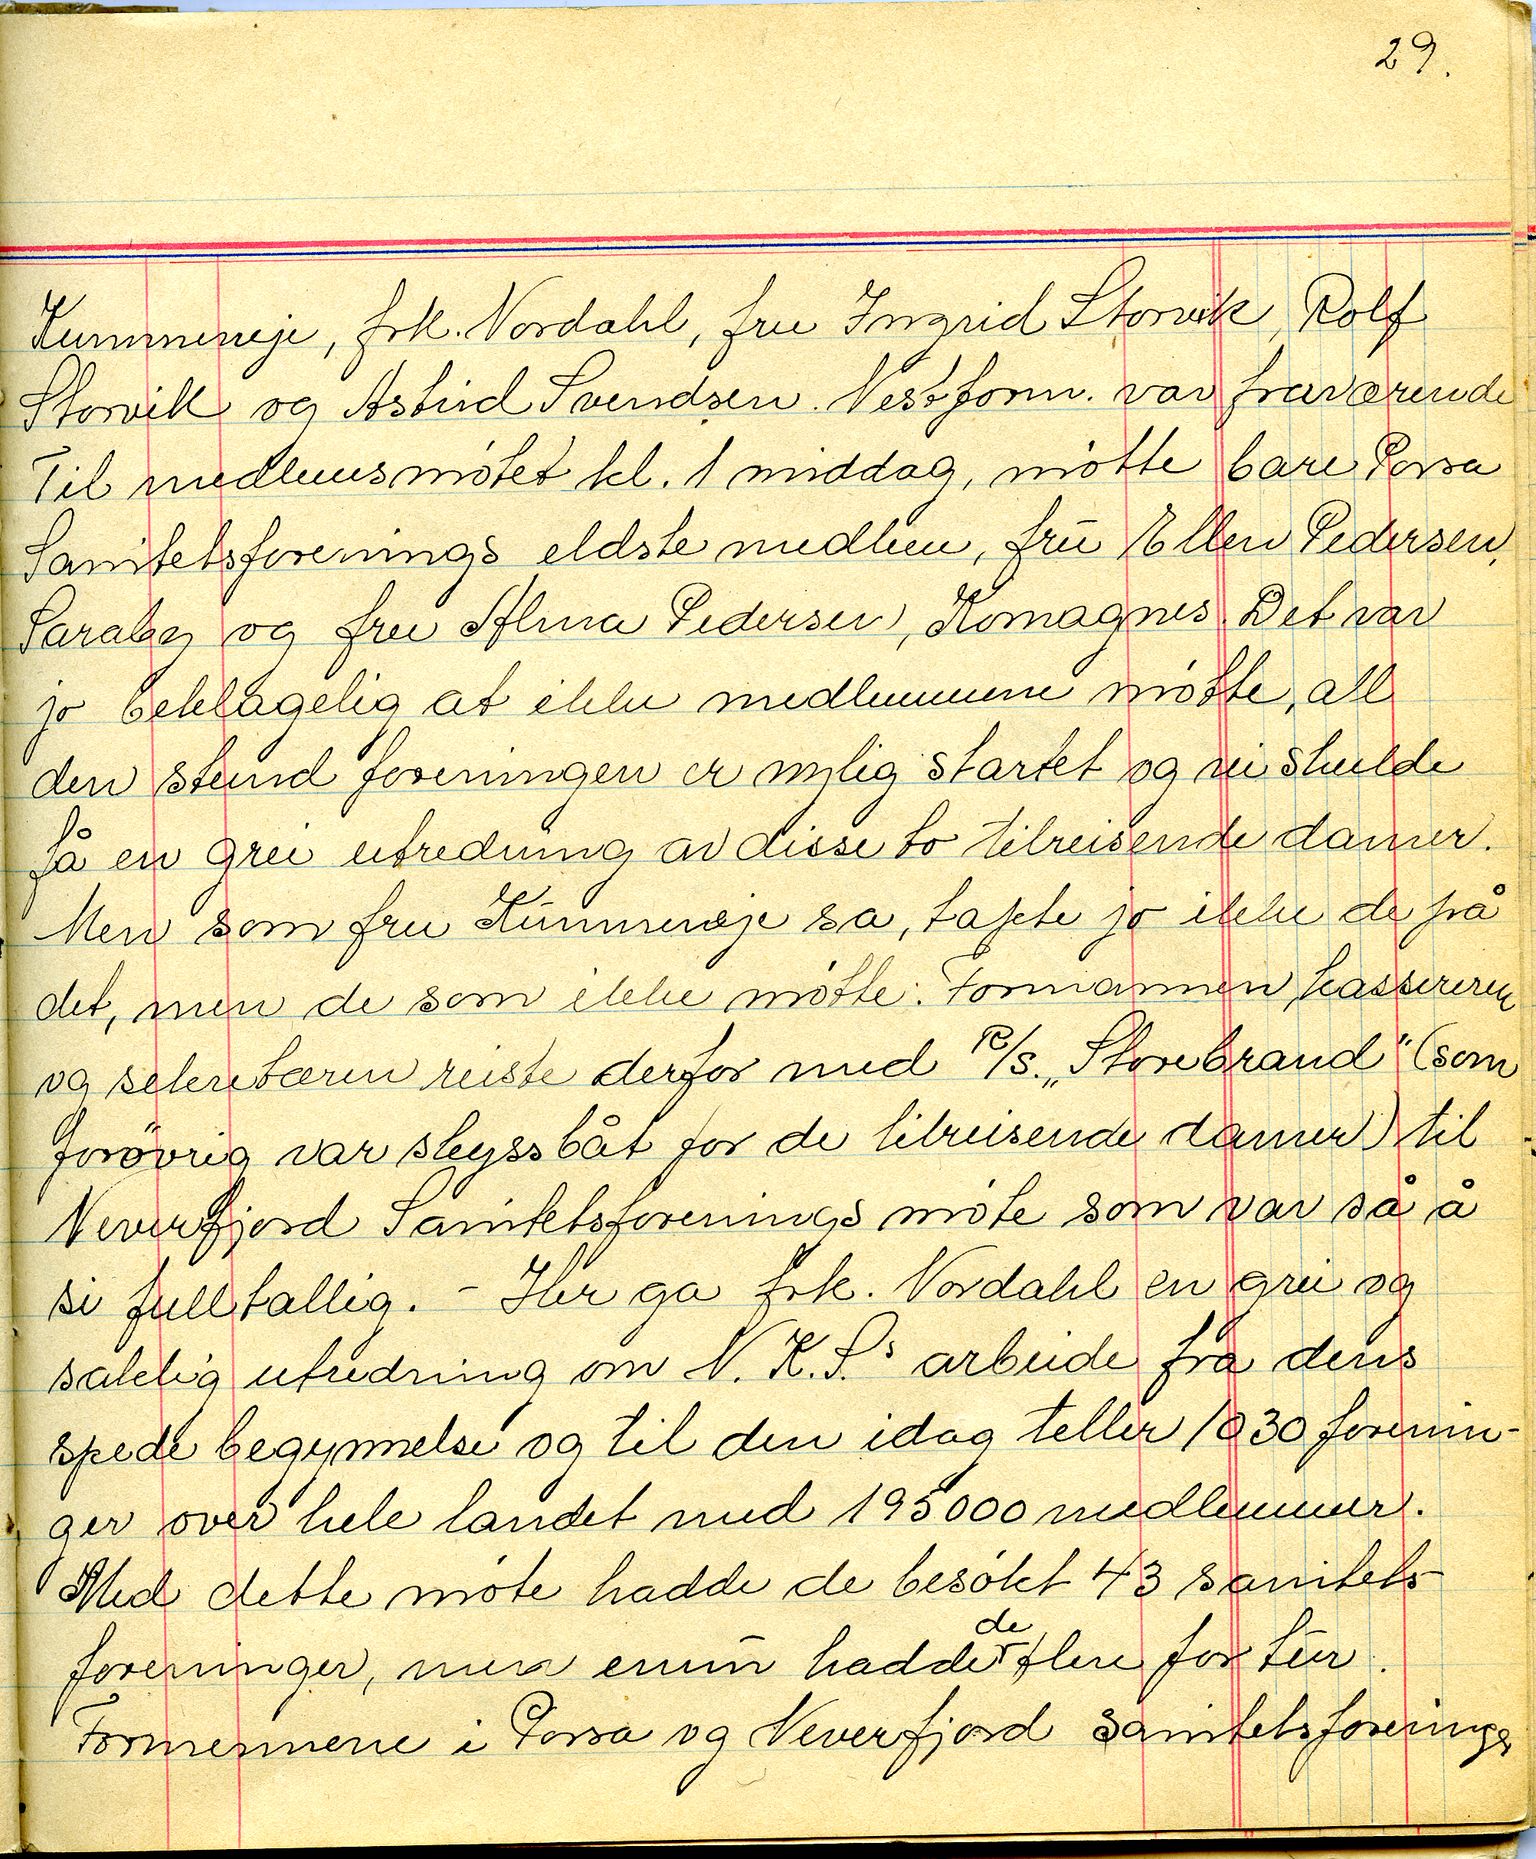 29.
Kummeneje, frk. Nordahl, fru Ingrid Storvik, Rolf
Storvik og Astrid Svendsen. Nestform. var fraværende
Til medlemsmötet kl. 1 middag, mötte bare Porsa
Sanitetsforenings eldste medlem, frū Ellen Pedersen,
Saraby og fru Alma Pedersen, Komagnes. Det var
jo beklagelig at ikke medlemmene mötte, all
den stund foreningen er nylig startet og vi skulde
få en grei utredning av disse to tilreisende damer.
Men som fru Kūmmeneje sa, tapte jo ikke de på
det, men de som ikke mötte. Formannen, kassereren
og sekretæren reiste derfor med R/S. „Storebrand" (som
forövrig var skyssbåt for de tilreisende damer) til
Neverfjord Sanitetsforenings möte som var så å
si fulltallig. – Her ga frk. Nordahl en grei og
saklig utredning om N. K. S.s arbeide fra dens
spede begynnelse og til den idag teller 1030 forenin-
ger over hele landet med 195000 medlemmer.
Med dette möte hadde de besökt 43 sanitets-
foreninger, men ennū hadde de flere for tūr.
Formennene i Porsa og Neverfjord sanitetsforeninger